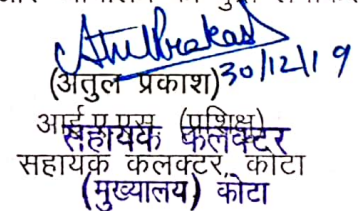 Atul Prakash
30/12/19
(अतुल प्रकाश)
आई.ए.एस. (प्रशिक्षु)
सहायक कलक्टर
सहायक कलक्टर, कोटा
(मुख्यालय) कोटा